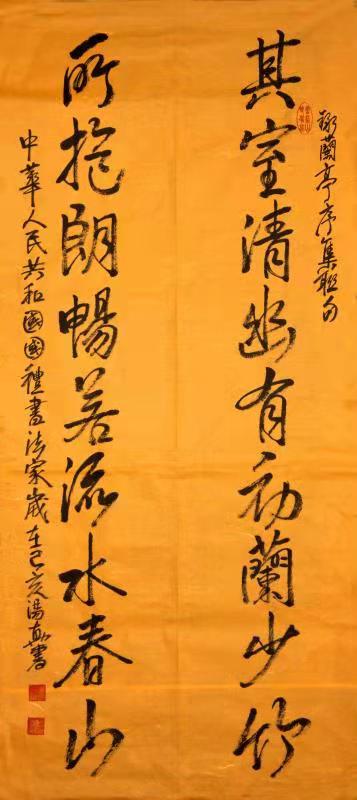 录蘭亭序集聯句
其室清幽有初蘭少竹
所抱朗暢若流水春山
中華人民共和國國禮書法家歲在己亥湯真書